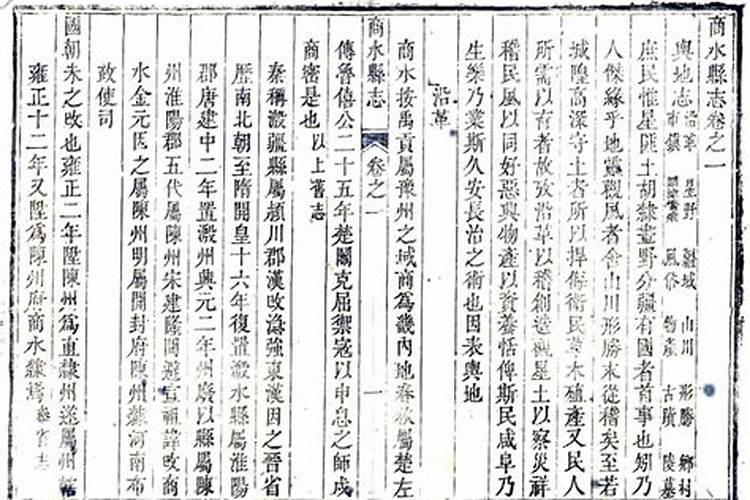 商水縣志卷之一
輿地志 沿革 星野 疆域 山川 形勝 鄉村 市鎮 風俗 物產 古蹟 陵墓
庶民惟星匪土胡隸畫野分疆有國者首事也矧乃
人傑緣乎地靈觀風者舍山川形勝末從稽矣至若
城隍高深守土者所以捍衛民草木殖產又民人
所需以有者故攷沿革以稽創造觀星土以察災祥
稽民風以同好惡與物產以資養恬俾斯民咸阜乃
生樂乃業斯久安長治之術也因表輿地
沿革
商水按禹貢屬豫州之域商為畿內地春秋屬楚左
商水縣志 卷之一 一
傳魯僖公二十五年楚鬬克屈禦寇以申息之師戍
商密是也 以上舊志
秦稱漵疆縣屬潁川郡漢改漵強東漢因之晉省
歷南北朝至隋開皇十六年復置漵水縣屬淮陽
郡唐建中二年置漵州興元二年州廢以縣屬陳
州淮陽郡五代屬陳州宋建隆間避宣祖諱改商
水金元因之屬陳州明屬開封府陳州隸河南布
政使司
國朝未之改也雍正二年陞陳州為直隸州遂屬州
雍正十二年又陞為陳州府商水隸焉 參省志